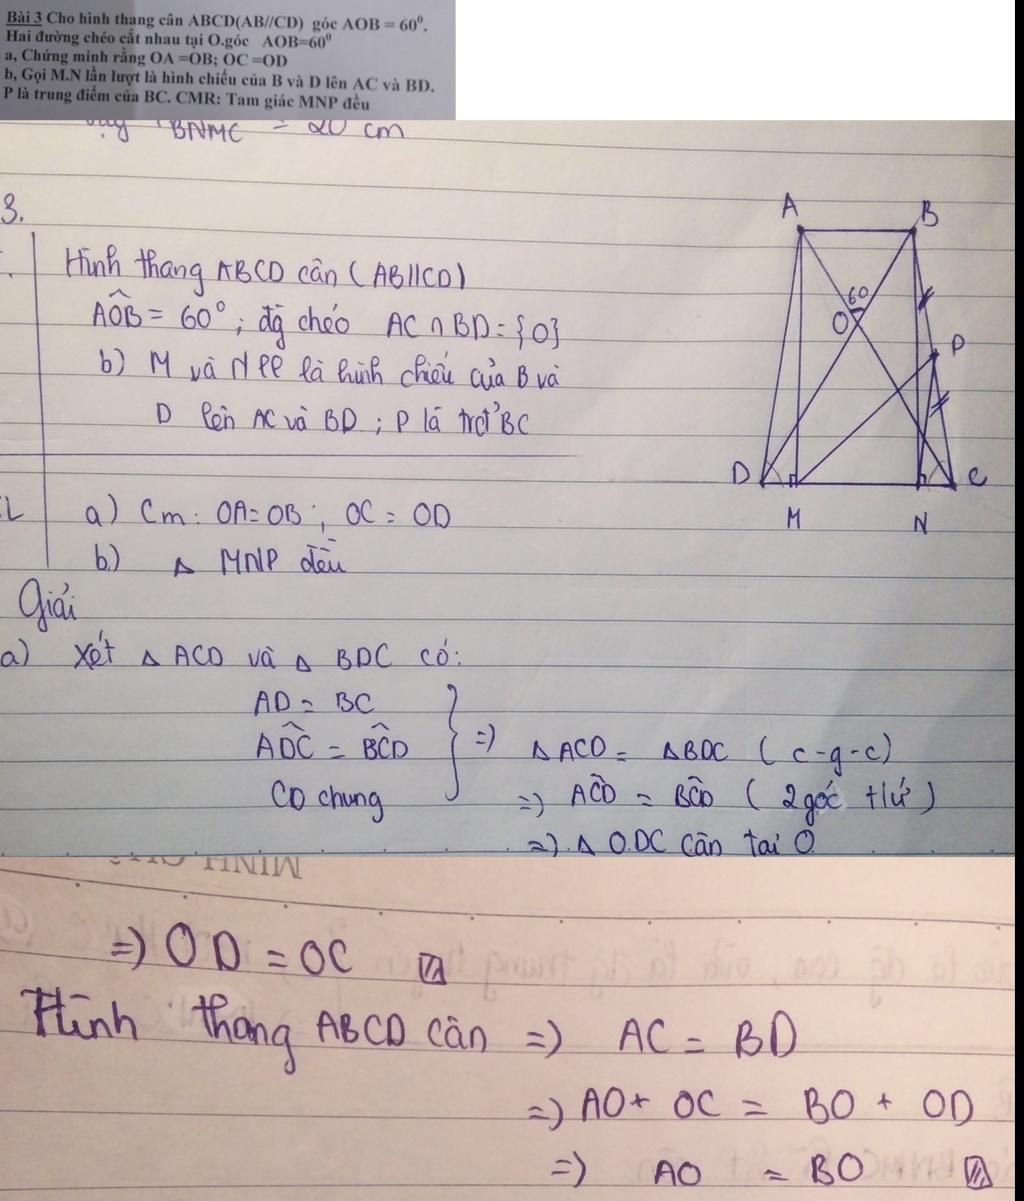 Bài 3 Cho hình thang cân ABCD(AB//CD) góc AOB = 60⁰.
Hai đường chéo cắt nhau tại O.góc AOB=60⁰
a, Chứng minh rằng OA =OB; OC =OD
b, Gọi M.N lần lượt là hình chiếu của B và D lên AC và BD.
P là trung điểm của BC. CMR: Tam giác MNP đều
BNMC = 20 cm
3.
Hình thang ABCD cân (AB//CD)
AOB = 60°; đg chéo AC ∩ BD = {O}
b) M và N ll là hình chiếu của B và
D lên AC và BD; P là trđ' BC
L a) Cm: OA = OB; OC = OD
b) Δ MNP đều
A B
60
O P
D C
M N
Giải
a) Xét Δ ACD và Δ BDC có:
AD = BC
ADC = BCD
CD chung
=> Δ ACD = Δ BDC (c-g-c)
=> ACD = BCD (2 góc t/ứ)
=> Δ ODC cân tại O
MINH
=> OD = OC
Hình thang ABCD cân => AC = BD
=> AO + OC = BO + OD
=> AO = BO